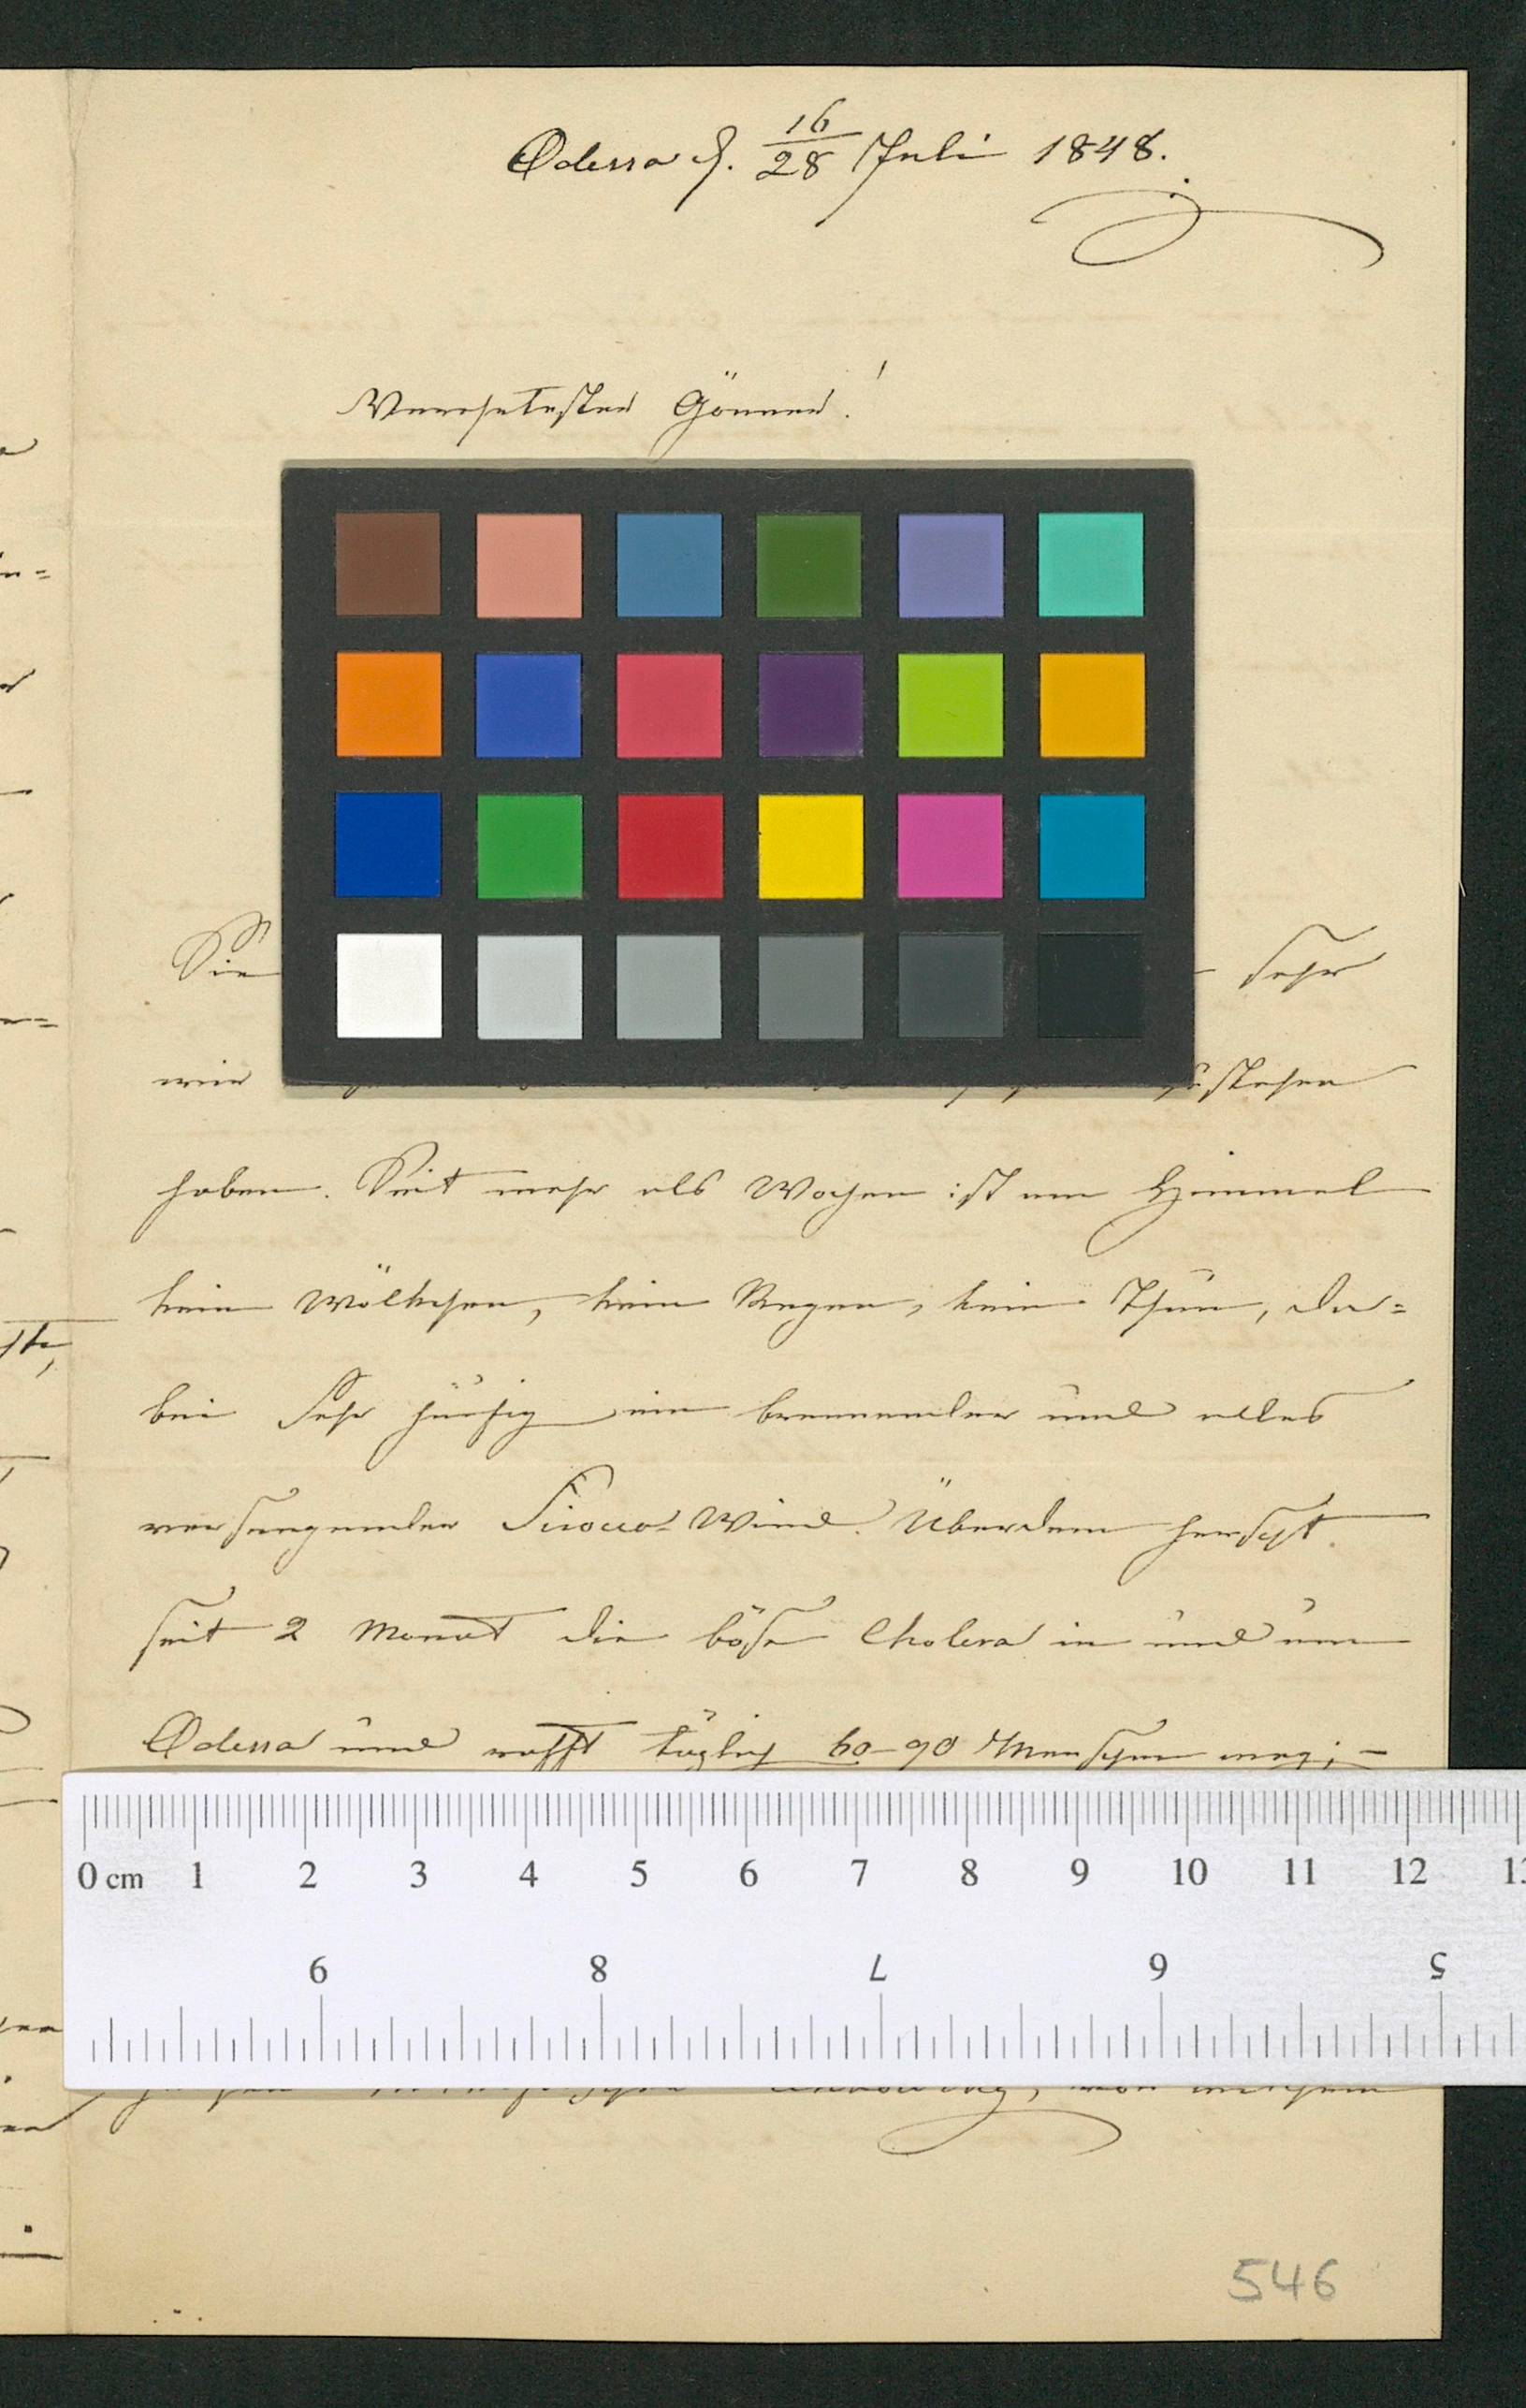 Odessa d. 16/28 Juli 1848.
Verehrtester Gönner!
Sie sehr
wir zustehen
haben. Seit mehr als Wochen ist am Himmel
kein Wölkchen, kein Regen, kein Thau, da=
bei sehr häufig ein brennender und alles
versengender Sirocco-Wind. Überdem herscht
seit 2 Monat die böse Cholera in und um
Odessa und rafft täglich 60-90 Menschen weg; –
0 cm 1 2 3 4 5 6 7 8 9 10 11 12 13
9 8 7 6 5
von welchem
546